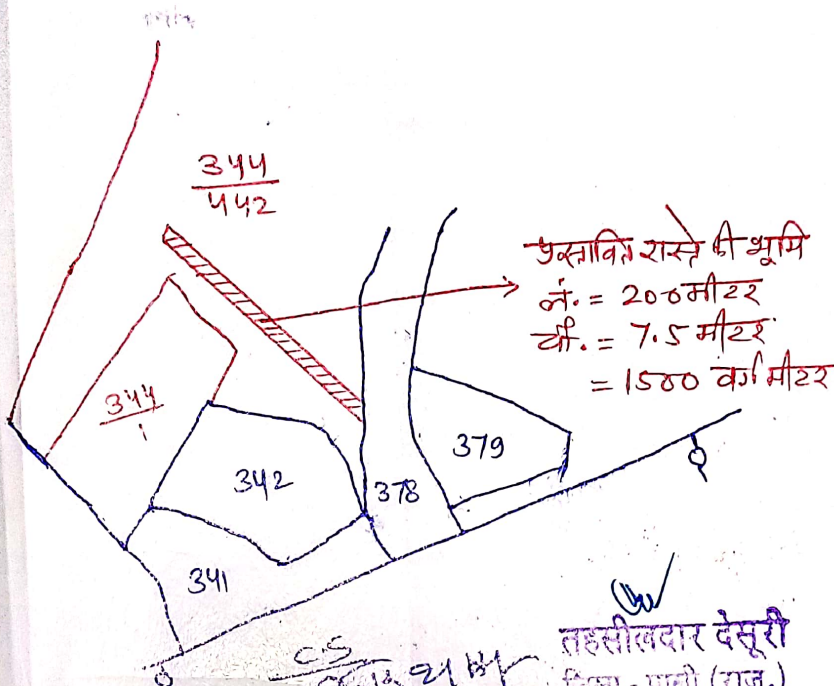 344
442
प्रस्तावित रास्ते की भूमि
लं. = 200मीटर
चौ. = 7.5 मीटर
= 1500 वर्ग मीटर
344
1
342
379
378
341
तहसीलदार देसूरी
जिला - पाली (राज.)
CS